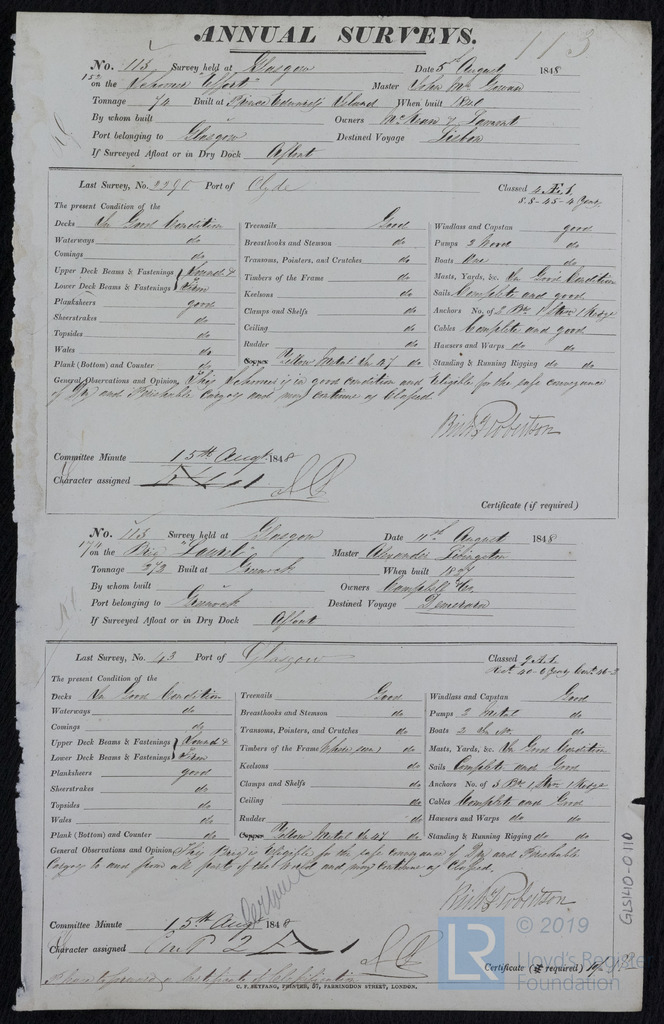 113
ANNUAL SURVEYS.
No. 113 Survey held at Glasgow Date 5th August 1848
152 on the Schooner "Effort" Master John Mc
Tonnage 74 Built at Prince Edwards Island When built 1841
By whom built " Owners
Port belonging to Glasgow Destined Voyage Lisbon
If Surveyed Afloat or in Dry Dock Afloat
Last Survey, No. Port of Clyde Classed 4 Æ 1
S.S-45-4 Years
The present Condition of the
Decks In Good Condition
Waterways do
Comings do
Upper Deck Beams & Fastenings } Sound &
Lower Deck Beams & Fastenings } Firm
Planksheers good
Sheerstrakes do
Topsides do
Wales do
Plank (Bottom) and Counter do
Treenails Good
Breasthooks and Stemson do
Transoms, Pointers, and Crutches do
Timbers of the Frame do
Keelsons do
Clamps and Shelfs do
Ceiling do
Rudder do
Copper Yellow Metal In 47 do
Windlass and Capstan good
Pumps 2 Wood do
Boats One do
Masts, Yards, &c. In Good Condition
Sails Complete and good
Anchors No. of 2 Br 1 Strm 1 Kedge
Cables Complete and good
Hawsers and Warps do do
Standing & Running Rigging do do
General Observations and Opinion, This Schooner is in good condition and Eligible for the safe conveyance
of Dry and Perishable Cargoes and may continue as Classed
Richd Robertson
Committee Minute 15th Augt 1848
Character assigned Æ 1
Certificate (if required)
No. 113 Survey held at Glasgow Date 11th August 1848
on the Brig "Laurel" Master Alexander
Tonnage 272 Built at Greenock When built
By whom built " Owners Campbell & Co.
Port belonging to Greenock Destined Voyage Demerara
If Surveyed Afloat or in Dry Dock Afloat
Last Survey, No. 43 Port of Glasgow Classed 9 A 1
40-6 Years 46-3
The present Condition of the
Decks In Good Condition
Waterways do
Comings do
Upper Deck Beams & Fastenings } Sound &
Lower Deck Beams & Fastenings } Firm
Planksheers good
Sheerstrakes do
Topsides do
Wales do
Plank (Bottom) and Counter do
Treenails Good
Breasthooks and Stemson do
Transoms, Pointers, and Crutches do
Timbers of the Frame (where seen) do
Keelsons do
Clamps and Shelfs do
Ceiling do
Rudder do
Copper Yellow Metal In 47 do
Windlass and Capstan Good
Pumps 2 Metal do
Boats 2 In No. do
Masts, Yards, &c. In Good Condition
Sails Complete and Good
Anchors No. of 3 Br 1 Strm 1 Kedge
Cables Complete and Good
Hawsers and Warps do do
Standing & Running Rigging do do
General Observations and Opinion, This Brig is Eligible for the safe conveyance of Dry and Perishable
Cargoes to and from all parts of the World and may Continue as Classed.
Richd Robertson
Committee Minute 15th Augt 1848
Character assigned
Certificate (if required)
Please to forward a Certificate of Classification
C. F. SEYFANG, PRINTER, 57, FARRINGDON STREET, LONDON.
GLS140-0110
© 2019
LR
Lloyd's Register
Foundation